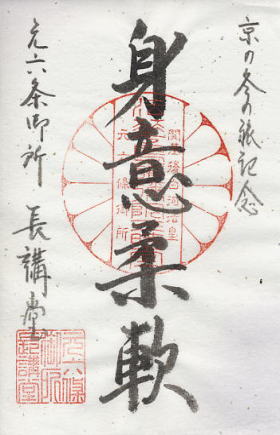 京の冬の旅記念
身意柔軟
元六条御所 長講堂
開基後白河法皇
元六條御所
元六條
御所
長講堂